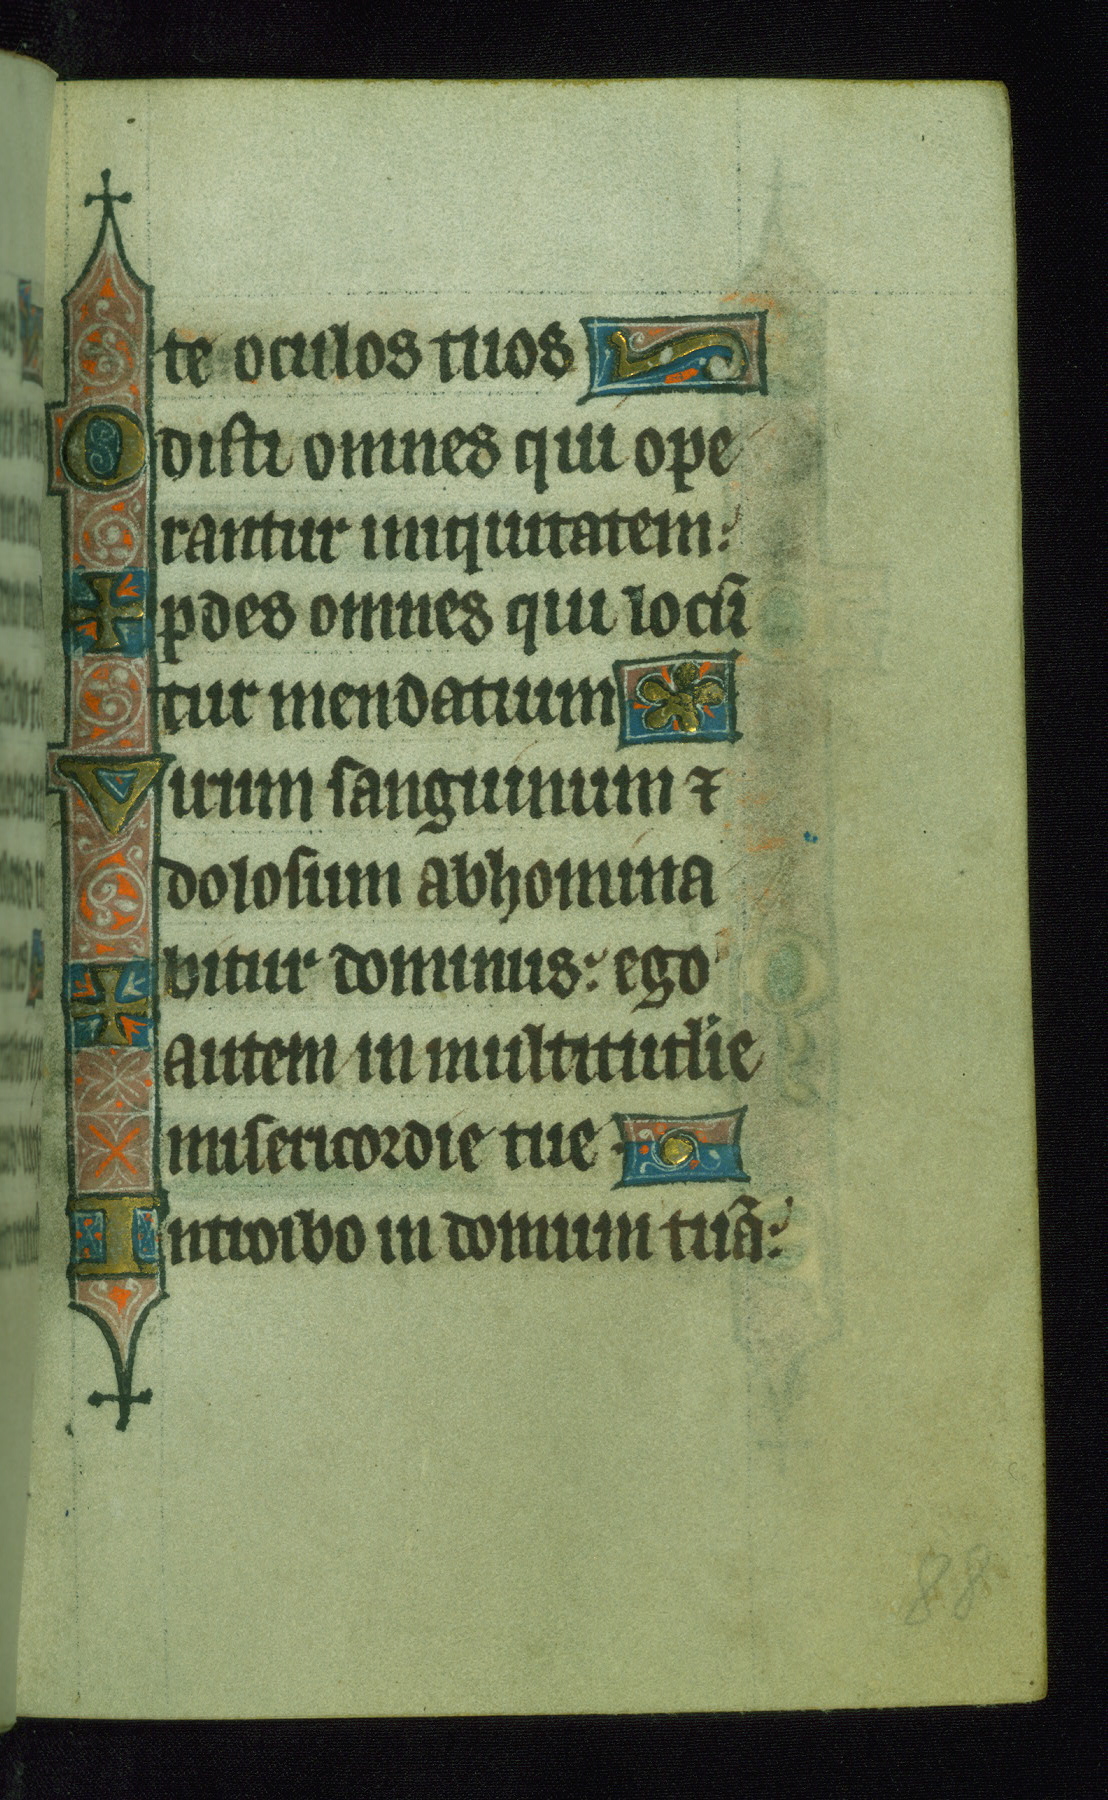 te oculos tuos
Odisti omnes qui ope
rantur iniquitatem:
pdes omnes qui locū
tur mendatium
Virum sanguinum ⁊
dolosum abhomina
bitur dominus: ego
autem in multitudie
misericordie tue
Introibo in domum tuā:
88